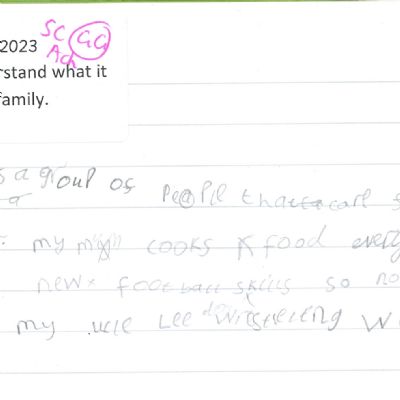 2023 SC GG
Ach
rstand what it
family.
s a group of People that care
a
my mum cooks food every
new football skills so no
my uncle Lee does Wrestering W